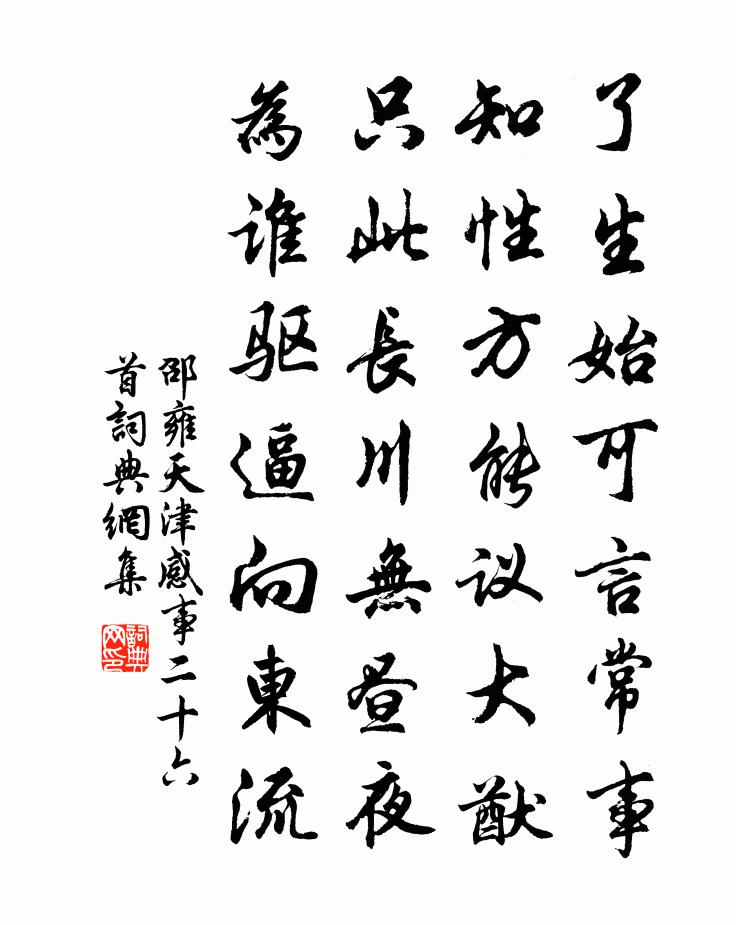 了生始可言常事
知性方能议大猷
只此長川無昼夜
為谁驱逼向東流
邵雍天津感事二十六
首詞典網集
詞典网印